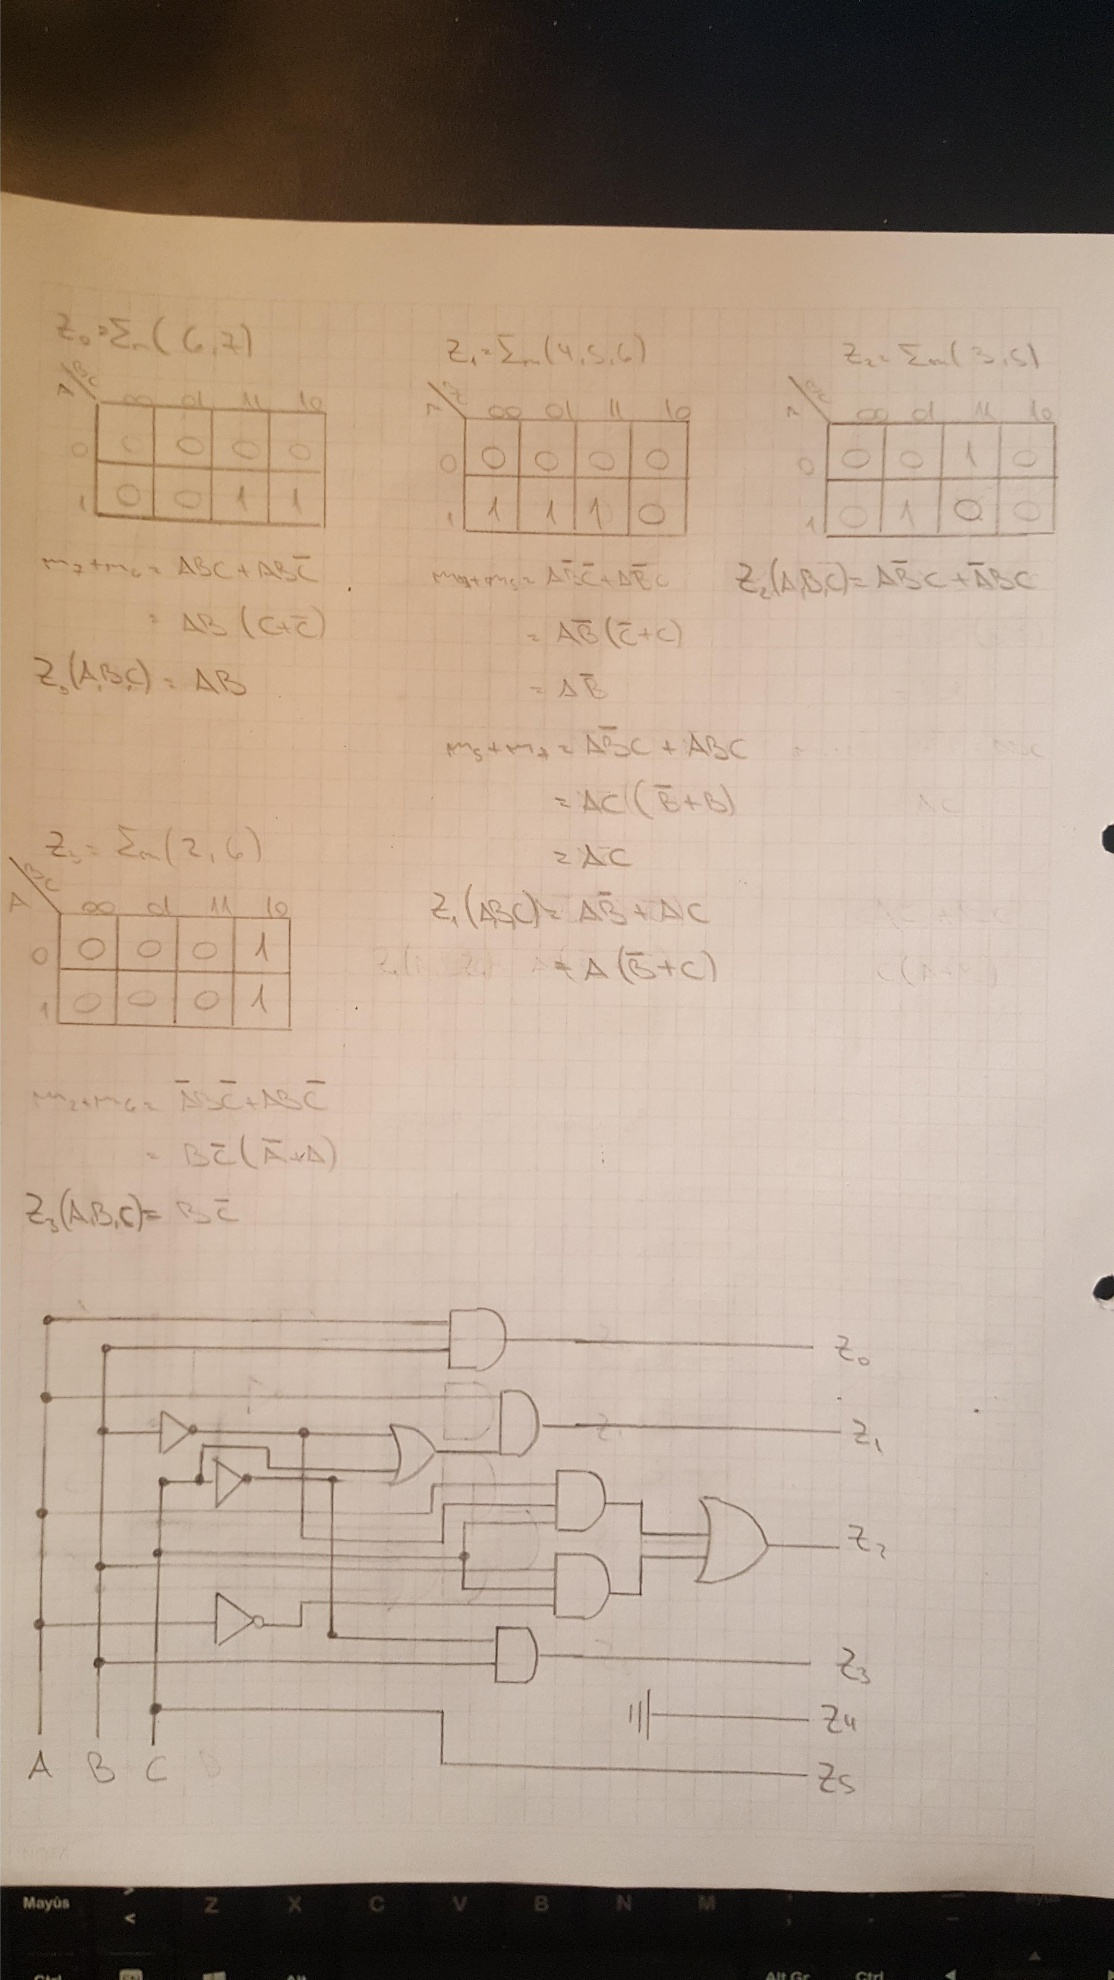 Z₀ = Σm(6,7)
A\BC 00 01 11 10
0 0 0 0 0
1 0 0 1 1
m₇+m₆ = ABC + ABC̅
= AB (C+C̅)
Z₀(A,B,C) = AB
Z₁ = Σm(4,5,6)
00 01 11 10
0 0 0 0 0
1 1 1 1 0
m₄+m₅ = AB̅C̅ + AB̅C
= AB̅(C̅+C)
= AB̅
m₅+m₇ = AB̅C + ABC
= AC(B̅+B)
= AC
Z₁(A,B,C) = AB̅ + AC
= A(B̅+C)
Z₂ = Σm(3,5)
00 01 11 10
0 0 0 1 0
1 0 1 0 0
Z₂(A,B,C) = AB̅C + A̅BC
Z₃ = Σm(2,6)
A\BC 00 01 11 10
0 0 0 0 1
1 0 0 0 1
m₂+m₆ = A̅BC̅ + ABC̅
= BC̅(A̅+A)
Z₃(A,B,C) = BC̅
Z₀
Z₁
Z₂
Z₃
Z₄
Z₅
A B C
Mayús > < Z X C V B N M
Ctrl Alt Alt Gr Ctrl